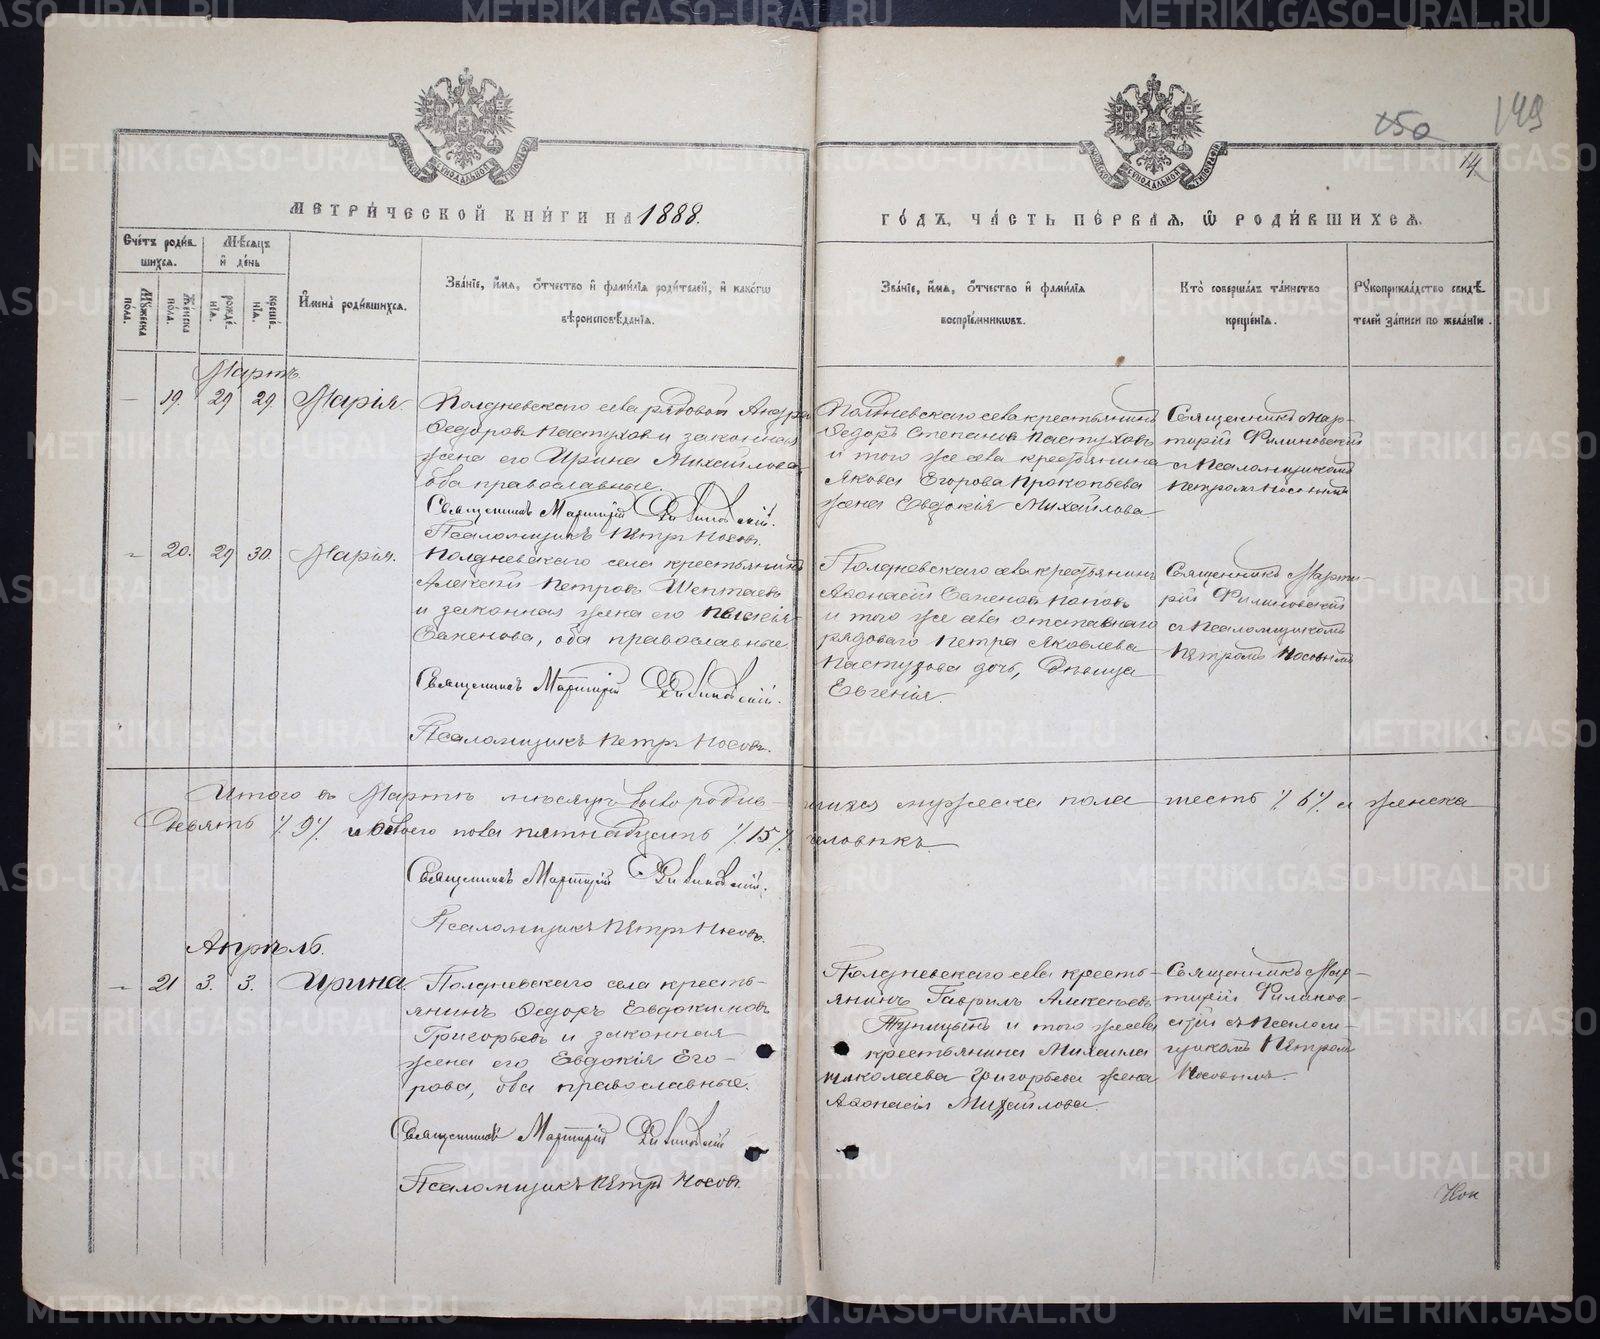 150
149
14
МЕТРИ́ЧЕСКОЙ КНИ́ГИ НА 1888.
ГО́ДЪ, ЧА́СТЬ ПЕ́РВАЯ, Ѡ҆ РОДИ́ВШИХСЯ.
Сче́тъ роди́в
шихся.
Мѣ́сяцъ
и҆ де́нь
Му́жеска
пола.
Же́нска
пола.
рожде́
нїя.
креще́
нїя.
И҆мена̀ роди́вшихся.
Зва́нїе, и҆́мя, ѻ҆́тчество и҆ фами́лїя роди́телей, и҆ како́гѡ
вѣроисповѣ́данїя.
Зва́нїе, и҆́мя, ѻ҆́тчество и҆ фами́лїя
воспрїе́мникѡвъ.
Кто̀ соверша́лъ та́инство
креще́нїя.
Рꙋкоприкла́дство свидѣ́
телей за́писи по жела́нїю.
Мартъ.
— 19. 29 29. Марія.
Полдневскаго села рядовой Андрей
Ѳедоровъ Пастуховъ и законная
жена его Ирина Михайлова,
оба православные.
Священникъ Мартирій Филиновскій.
Псаломщикъ Петръ Носовъ.
Полдневскаго села крестьянинъ
Ѳедоръ Степановъ Пастуховъ
и того же села крестьянина
Якова Егорова Прокопьева
жена Евдокія Михайлова.
Священникъ Мар-
тирій Филиновскій
съ Псаломщикомъ
Петромъ Носовымъ
- 20. 29 30. Марія.
Полдневскаго села крестьянинъ
Алексѣй Петровъ Шептаевъ
и законная жена его
Баженова, оба православные
Священникъ Мартирій Филиновскій.
Псаломщикъ Петръ Носовъ.
Полдневскаго села крестьянинъ
Аѳонасій Баженовъ Поповъ
и того же села отставнаго
рядоваго Петра Яковлева
Пастухова дочь, Дѣвица
Евгенія.
Священникъ Марти-
рій Филиновскій
съ Псаломщикомъ
Петромъ Носовымъ
Итого въ Мартѣ мѣсяцѣ было родив-шихся мужеска пола шесть /6/ и женска
девять /9/. обоего пола пятнадцать /15/. человѣкъ.
Священникъ Мартирій Филиновскій.
Псаломщикъ Петръ Носовъ.
Апрѣль.
- 21 3. 3. Ирина.
Полдневскаго села кресть-
янинъ Ѳедоръ Евдокимовъ
Григорьевъ и законная
жена его Евдокія Его-
рова, оба православные.
Священникъ Мартирій Филиновскій
Псаломщикъ Петръ Носовъ.
Полдневскаго села кресть-
янинъ Гавріилъ Алексѣевъ
Тупицынъ и того же села
крестьянина Михаила
Николаева Григорьева жена
Аѳонасія Михайлова.
Священникъ Мар-
тирій Филинов-
скій съ Псалом-
щикомъ Петромъ
Носовымъ.
METRIKI.GASO-URAL.RU